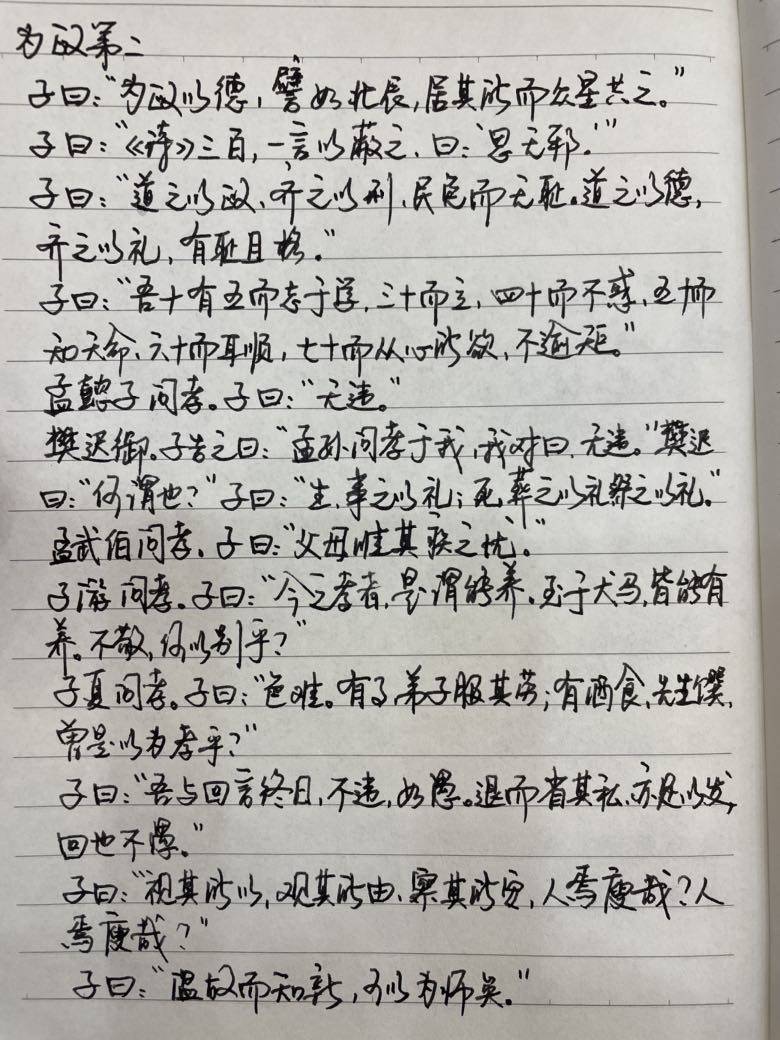 为政第二
子曰:“为政以德,譬如北辰,居其所而众星共之。”
子曰:“《诗》三百,一言以蔽之,曰:‘思无邪.’”
子曰:“道之以政、齐之以刑、民免而无耻。道之以德,
齐之以礼,有耻且格。”
子曰:“吾十有五而志于学,三十而立,四十而不惑,五十而
知天命、六十而耳顺,七十而从心所欲,不逾矩。”
孟懿子问孝。子曰:“无违。”
樊迟御。子告之曰:“孟孙问孝于我,我对曰,无违。”樊迟
曰:“何谓也?”子曰:“生,事之以礼;死,葬之以礼,祭之以礼。”
孟武伯问孝。子曰:“父母唯其疾之忧。”
子游问孝。子曰:“今之孝者,是谓能养。至于犬马,皆能有
养。不敬,何以别乎?”
子夏问孝。子曰:“色难。有事,弟子服其劳;有酒食,先生馔,
曾是以为孝乎?”
子曰:“吾与回言终日,不违,如愚。退而省其私,亦足以发,
回也不愚。”
子曰:“视其所以,观其所由、察其所安,人焉廋哉?人
焉廋哉?”
子曰:“温故而知新,可以为师矣。”